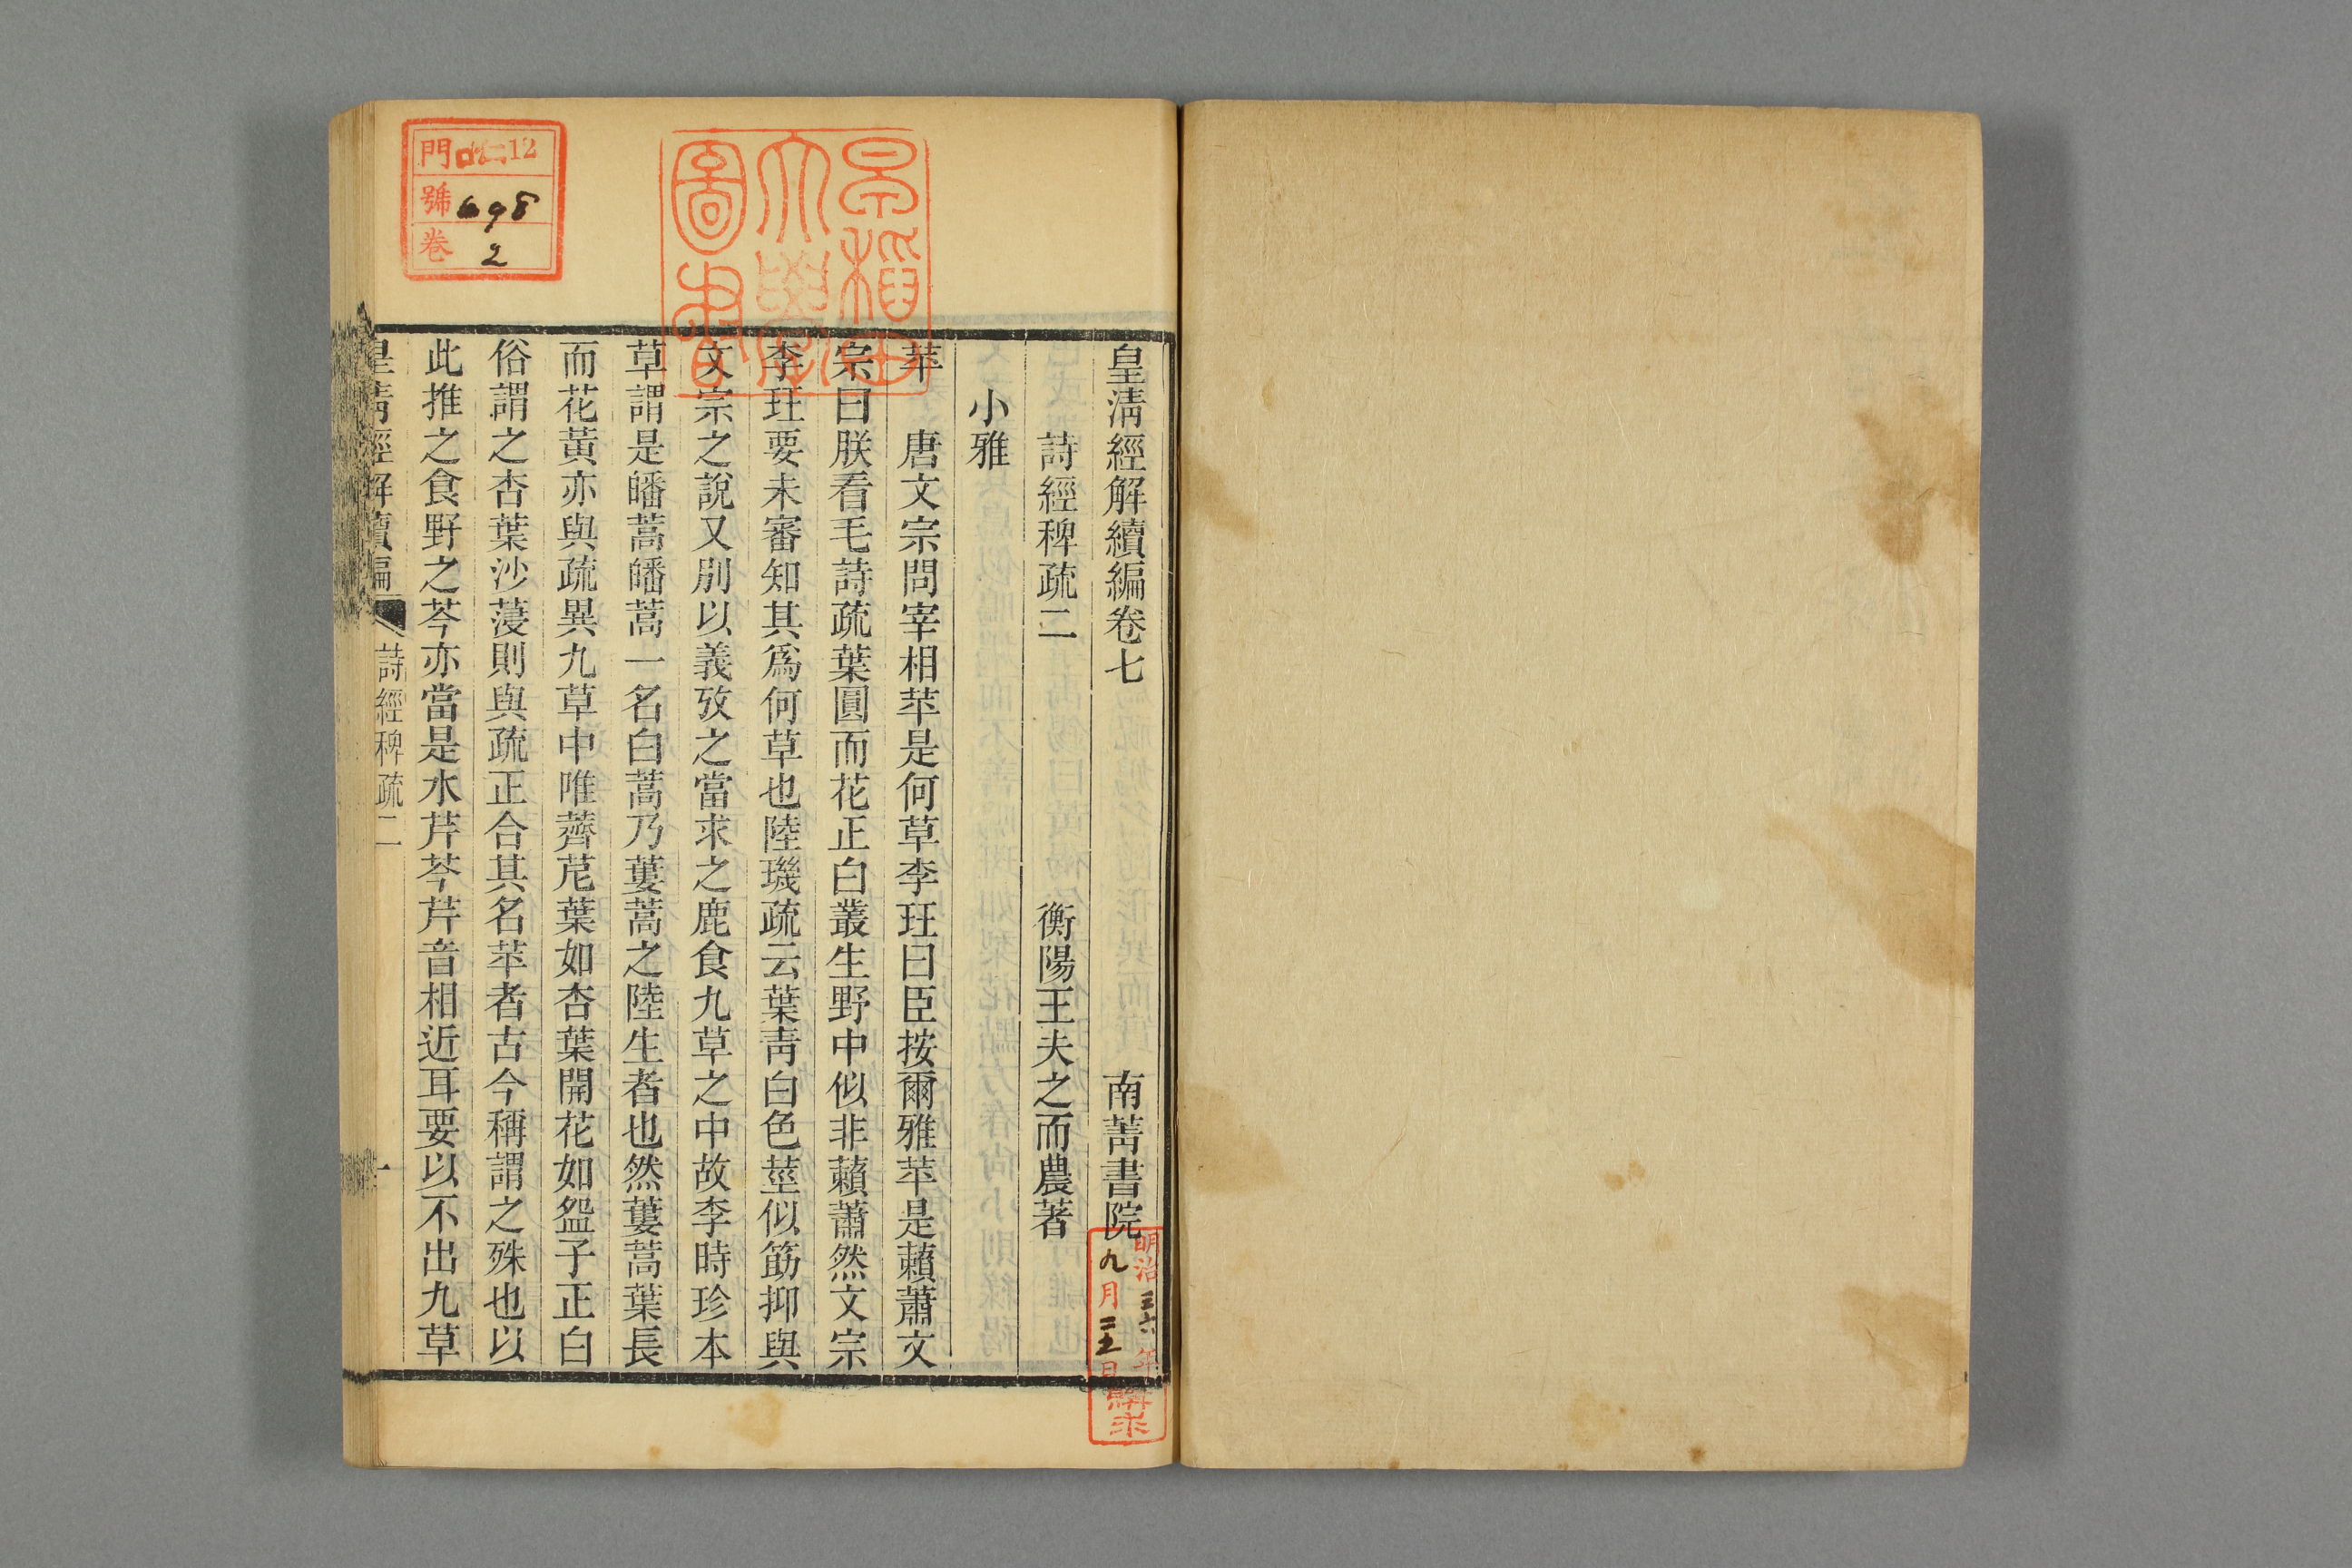 皇清經解續編卷七 南菁書院
詩經稗疏二 衡陽王夫之而農著
小雅
苹 唐文宗問宰相苹是何草李玨曰臣按爾雅苹是藾蕭文
宗曰朕看毛詩疏葉圓而花正白叢生野中似非藾蕭然文宗
李玨要未審知其爲何草也陸璣疏云葉青白色莖似筯抑與
文宗之說又別以義攷之當求之鹿食九草之中故李時珍本
草謂是皤蒿皤蒿一名白蒿乃蔞蒿之陸生者也然蔞蒿葉長
而花黃亦與疏異九草中唯薺苨葉如杏葉開花如盌子正白
俗謂之杏葉沙蓡則與疏正合其名苹者古今稱謂之殊也以
此推之食野之芩亦當是水芹芩芹音相近耳要以不出九草
皇清經解續編 詩經稗疏二 一
門 12
號 698
卷 2
早稲田
大學
圖書
明治三六年
九月二五日
購求